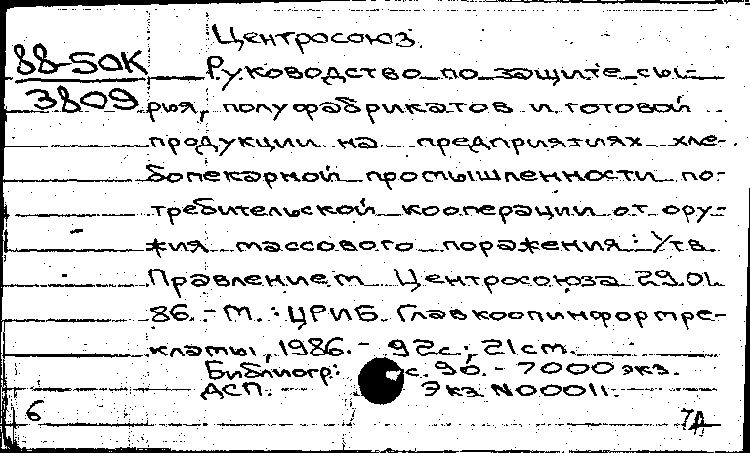 Центросоюз.
88-50К Руководство по защите сы-
3809 рья, полуфабрикатов и готовой
продукции на предприятиях хле-
бопекарной промышленности по-
требительской кооперации от ору-
жия массового поражения: Утв.
Правлением Центросоюза 29.01.
86. - М.: ЦРИБ Главкоопинформре-
кламы, 1986. - 92с; 21см.
Библиогр: с. 90. - 7000 экз.
ДСП. Экз N00011.
6